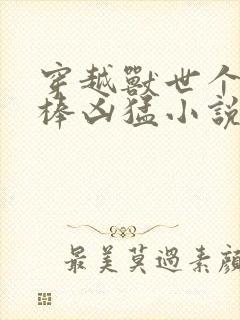 穿越獸世个
棒凶猛小說
最美莫過素顏